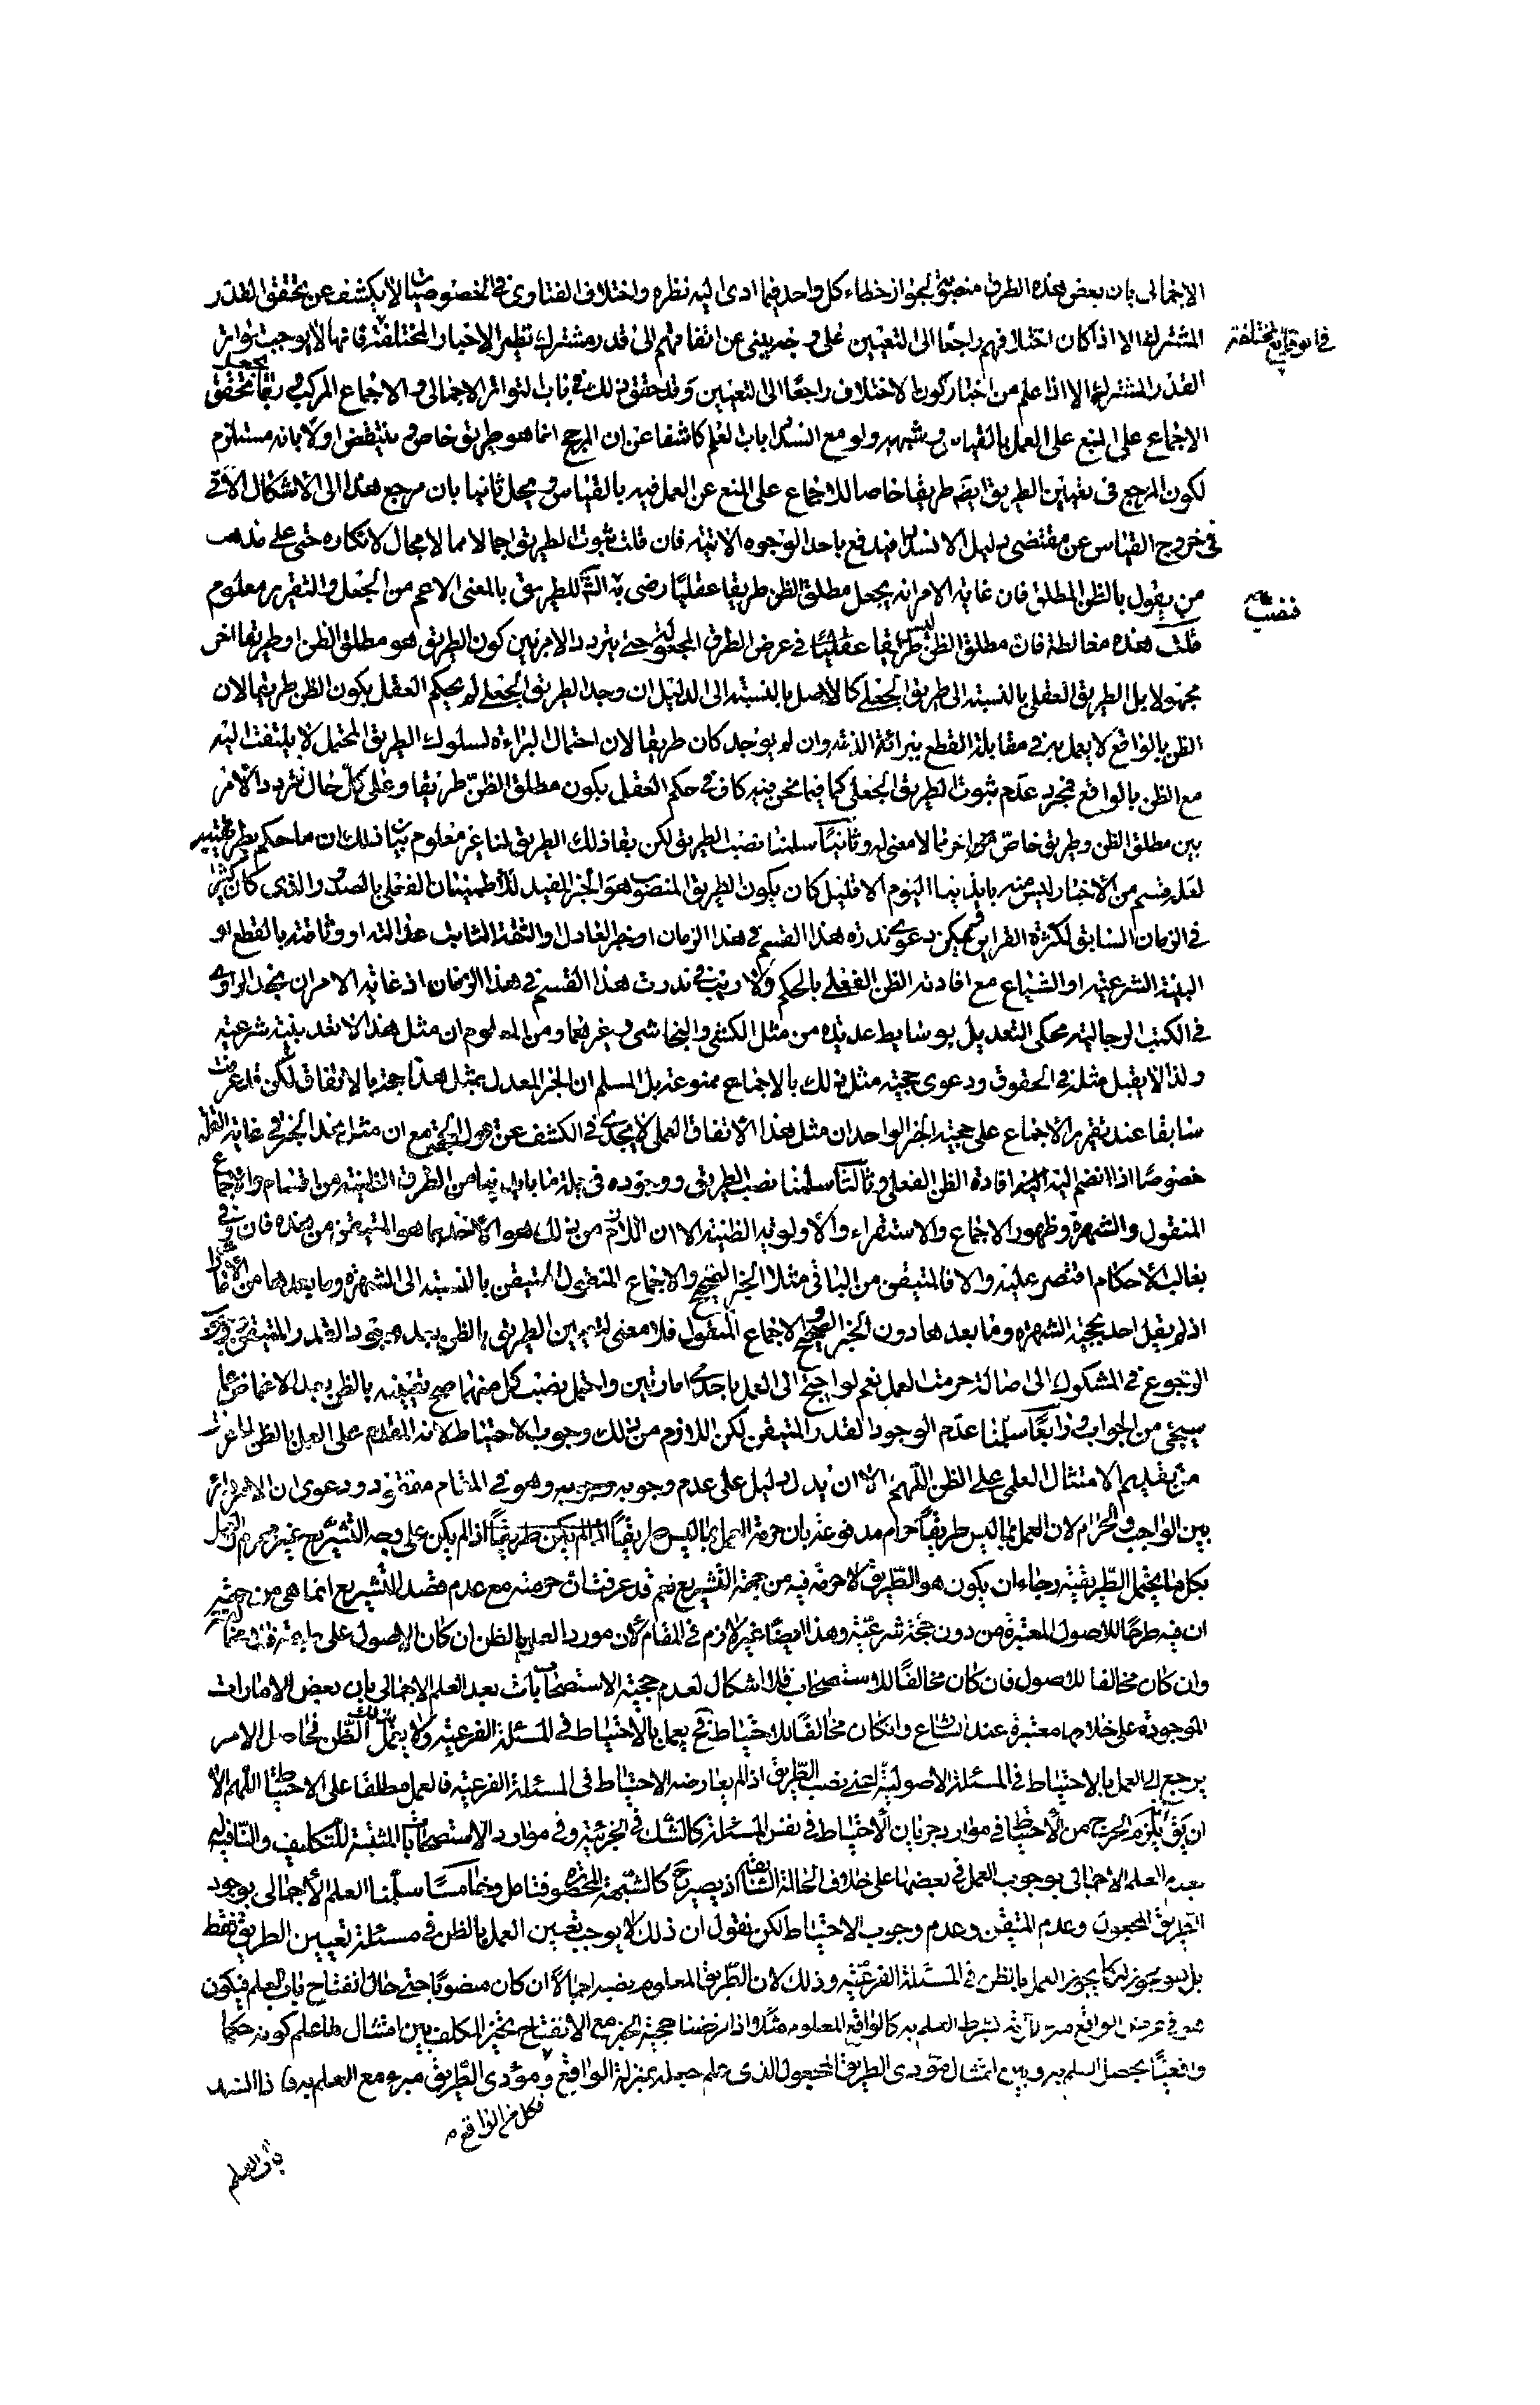 الاجمالى بان بعض هذه الطرق منصوبة لجواز خطاء كل واحد فيما ادى اليه نظره واختلاف الفتاوى فى الخصوصيات لا يكشف عن تحقق القدر
المشترك الا اذا كان اختلافهم راجعا الى التعيين على وجه ينبئ عن اتفاقهم على قدر مشترك نظير الاخبار المختلفة فانها لا يوجب تواتر
فى الوقايع المختلفة
القدر المشترك الا اذا علم من اخبار كون الاختلاف راجعا الى التعيين وقد حقق ذلك فى باب التواتر الاجمالى والاجماع المركب وربما يجعل تحقق
الاجماع على المنع على العمل بالقياس وشبهه ولو مع انسداد باب العلم كاشفا عن ان المرجع انما هو طريق خاص وينتقض اولا بانه مستلزم
لكون المرجع فى تعيين الطريق ايضا طريقا خاصا للاجماع على المنع عن العمل فيه بالقياس ويحل ثانيا بان مرجع هذا الى الاشكال الآتى
فى خروج القياس عن مقتضى دليل الانسداد فيدفع باحد الوجوه الاتية فان قلت ثبوت الطريق اجمالا مما لا مجال لانكاره حتى على مذهب
من يقول بالظن المطلق فان غاية الامر انه يجعل مطلق الظن طريقا عقليا رضى به الشارع للطريق بالمعنى الاعم من الجعل والتقرير معلوم
فنصب
قلت هذه مغالطة فان مطلق الظن ليس طريقا عقليا فى عرض الطرق المجعولة حتى يتردد الامر بين كون الطريق هو مطلق الظن او طريقا اخر
مجعولا بل الطريق العقلى بالنسبة الى طريق الجعلى كالاصل بالنسبة الى الدليل ان وجد الطريق الجعلى لم يحكم العقل بكون الظن طريقا لان
الظن بالواقع لا يعمل به فى مقابلة القطع ببرائة الذمة وان لم يوجد كان طريقا لان احتمال البراءة لسلوك الطريق المحتمل لا يلتفت اليه
مع الظن بالواقع فمجرد عدم ثبوت الطريق الجعلى كما فيما نحن فيه كاف فى حكم العقل بكون مطلق الظن طريقا وعلى كل حال فتردد الامر
بين مطلق الظن وطريق خاص اخر مما لا معنى له وثانيا سلمنا نصب الطريق لكن بقاء ذلك الطريق لنا غير معلوم بيان ذلك ان ما حكم بطريقيته
لعله قسم من الاخبار ليس منه بايدينا اليوم الا قليل كان يكون الطريق المنصوب هو الخبر المفيد للاطمينان الفعلى بالصدور الذى كان كثيرا
فى الزمان السابق لكثرة القراين ويمكن دعوى ندرة هذا القسم فى هذا الزمان او خبر العادل والثقة الثابت عدالته او وثاقته بالقطع او
البينة الشرعية او الشياع مع افادته الظن الفعلى بالحكم ولا ريب فى ندرت هذا القسم فى هذا الزمان اذ غاية الامر ان نجد الراوى
فى الكتب الرجالية محكى التعديل بوسايط عديدة من مثل الكشى والنجاشى وغيرهما ومن المعلوم ان مثل هذا لا تعد بينة شرعية
ولذا لا يقبل مثله فى الحقوق ودعوى حجية مثل ذلك بالاجماع ممنوعة بل المسلم ان الخبر المعدل بمثل هذا حجة بالاتفاق لكن قد عرفت
سابقا عند تقرير الاجماع على حجية الخبر الواحد ان مثل هذا الاتفاق العملى لا يجدى فى الكشف عن قول الحجة مع ان مثل هذا الخبر فى غاية القلة
خصوصا اذا انضم اليه افادة الظن الفعلى وثالثا سلمنا نصب الطريق ووجوده فى جملة ما بايدينا من الطرق الظنية من اقسام والاجماع
المنقول والشهرة وظهور الاجماع والاستقراء والاولوية الظنية الا ان اللازم من ذلك هو الاخذ بما هو المتيقن من هذه فان وفى
بغالب الاحكام اقتصر عليه والا فالمتيقن من الباقى مثلا الخبر الصحيح والاجماع المنقول متيقن بالنسبة الى الشهرة وما بعدها من الامارات
اذ لم يقل احد بحجية الشهرة وما بعدها دون الخبر الصحيح والاجماع المنقول فلا معنى لتعيين الطريق بالظن بعد وجود القدر المتيقن ووجوب
الرجوع فى المشكوك الى اصالة حرمة العمل نعم لو احتيج الى العمل باحدى امارتين واحتمل نصب كل منهما صح تعيينه بالظن بعد الاغماض عما
سيجئ من الجواب ورابعا سلمنا عدم الوجود القدر المتيقن لكن اللازم من ذلك وجوب الاحتياط لانه المقدم على العمل بالظن لما عرفت
من تقديم الامتثال العلمى على الظن اللهم الا ان يدل دليل على عدم وجوبه وهو فى المقام مفقود ودعوى ان الامر دائر
بين الواجب والحرام لان العمل بما ليس طريقا حرام مدفوعة بان حرمة العمل بما ليس طريقا اذا لم يكن على وجه التشريع غير محرم والعمل
بكل ما يحتمل الطريقية رجاء ان يكون هو الطريق لا حرمة فيه من جهة التشريع نعم قد عرفت ان حرمته مع عدم قصد التشريع انما هى من جهة
ان فيه طرحا للاصول المعتبرة من دون حجة شرعية وهذا ايضا غير لازم فى المقام لان مورد العمل بالظن ان كان الاصول على طبقه فلا مخالفة
وان كان مخالفا للاصول فان كان مخالفا للاستصحاب فلا اشكال لعدم حجية الاستصحابات بعد العلم الاجمالى بان بعض الامارات
الموجودة على خلافها معتبرة عند الشارع وان كان مخالفا للاحتياط فح يعمل بالاحتياط فى المسئلة الفرعية ولا يعمل بذلك الظن فحاصل الامر
يرجع الى العمل بالاحتياط فى المسئلة الاصولية اعنى نصب الطريق اذا لم يعارضه الاحتياط فى المسئلة الفرعية فالعمل مطلقا على الاحتياط اللهم الا
ان يق يلزم الحرج من الاحتياط فى موارد جريان الاحتياط فى نفس المسئلة كالشك فى الجزئية وفى موارد الاستصحابات المثبتة للتكليف والنافية له
بعد العلم الاجمالى بوجوب العمل فى بعضها على خلاف الحالة السابقة اذ يصير ح كالشبهة المحصورة فتامل وخامسا سلمنا العلم الاجمالى بوجود
الطريق المجعول وعدم المتيقن وعدم وجوب الاحتياط لكن نقول ان ذلك لا يوجب تعيين العمل بالظن فى مسئلة تعيين الطريق فقط
بل هو مجوز له كما يجوز العمل بالظن فى المسئلة الفرعية وذلك لان الطريق المعلوم نصبه اجمالا ان كان منصوبا حتى حال انفتاح باب العلم فيكون
هو فى عرض الواقع مبرء للذمة بشرط العلم به كالواقع المعلوم مثلا اذا فرضنا حجية الخبر مع الانفتاح تخير المكلف بين امتثال ما علم كونه حكما
واقعيا بتحصيل العلم به وبين امتثال مؤدى الطريق المجعول الذى علم جعله بمنزلة الواقع ومؤدى الطريق مبرء مع العلم به فاذا انسد
فكل من الواقع
باب العلم